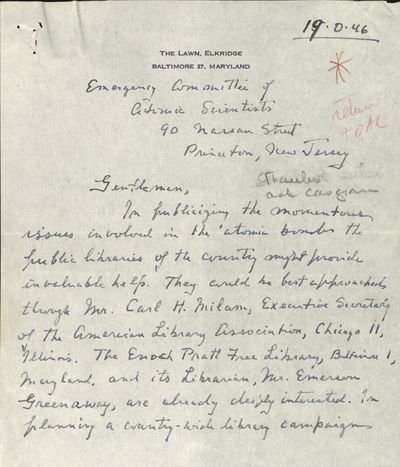 19·O·46
THE LAWN, ELKRIDGE
BALTIMORE 27, MARYLAND
Emergency Committee of
Atomic Scientists
90 Nassau Street
Princeton, New Jersey
return
to OAC
Gentlemen,
ask
In publicizing the momentous
issues involved in the atomic bombs the
public libraries of the country might provide
invaluable help. They could be best approached
through Mr. Carl H. Milam, Executive Secretary
of the American Library Association, Chicago 11,
Illinois. The Enoch Pratt Free Library, Baltimore 1,
Maryland, and its Librarian, Mr. Emerson
Greenaway, are already deeply interested. In
planning a country-wide library campaign